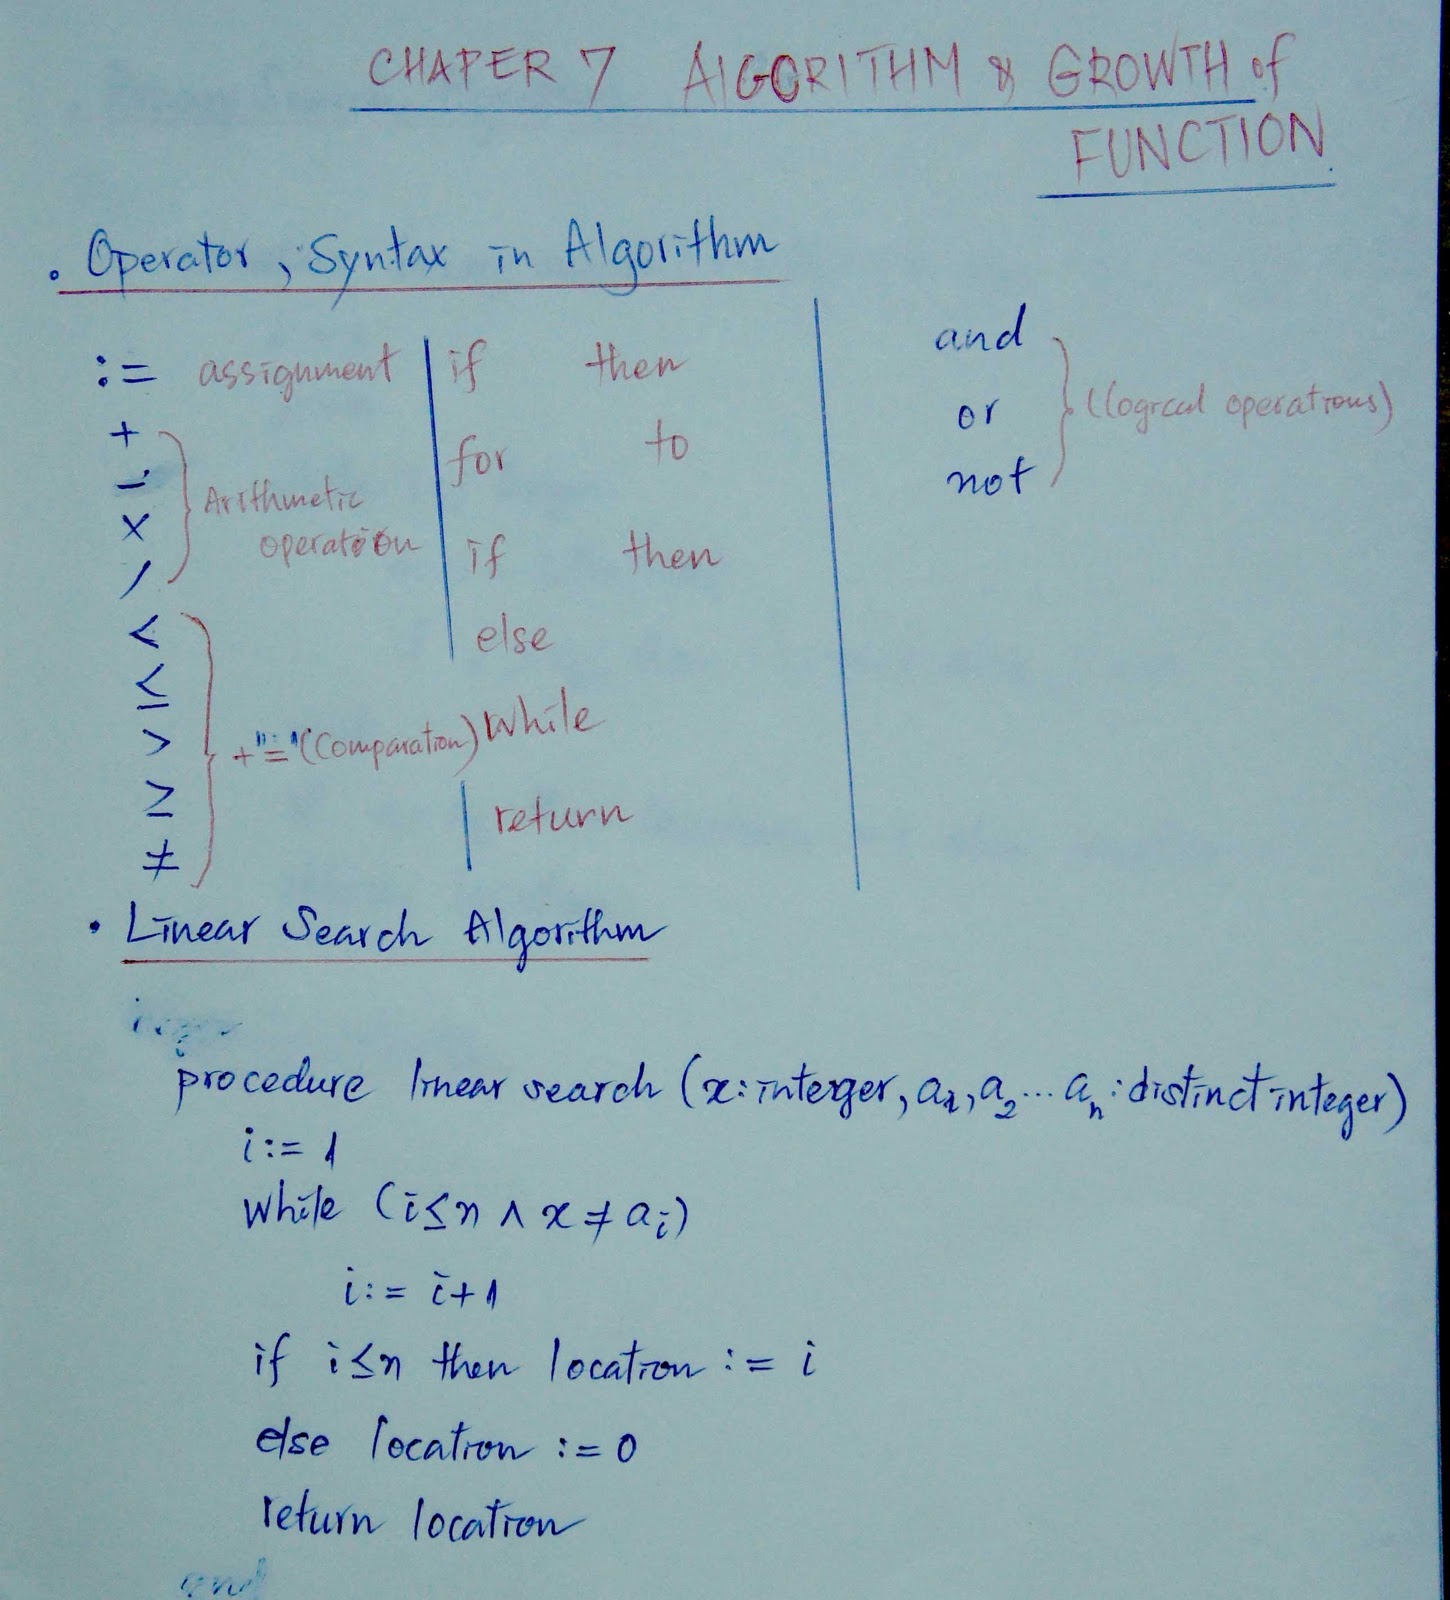 CHAPER 7 AlGORITHM & GROWTH of
FUNCTION
. Operator, Syntax in Algorithm
:= assignment
+
-
×
/
Arithmetic
operation
<
≤
>
≥
≠
+ "=" (Comparation)
if then
for to
if then
else
While
return
and
or
not
(logical operations)
• Linear Search Algorithm
procedure linear search (x: interger, a1, a2 ... an : distinct integer)
i := 1
While (i ≤ n ∧ x ≠ ai)
i := i+1
if i ≤ n then location := i
else location := 0
return location
end